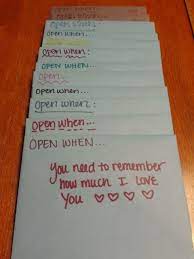 open when...
open when:
open when...
open when:
OPEN WHEN...
open...
open when...
open when:
open when...
OPEN WHEN...
you need to remember
how much I love
you ♡♡♡♡